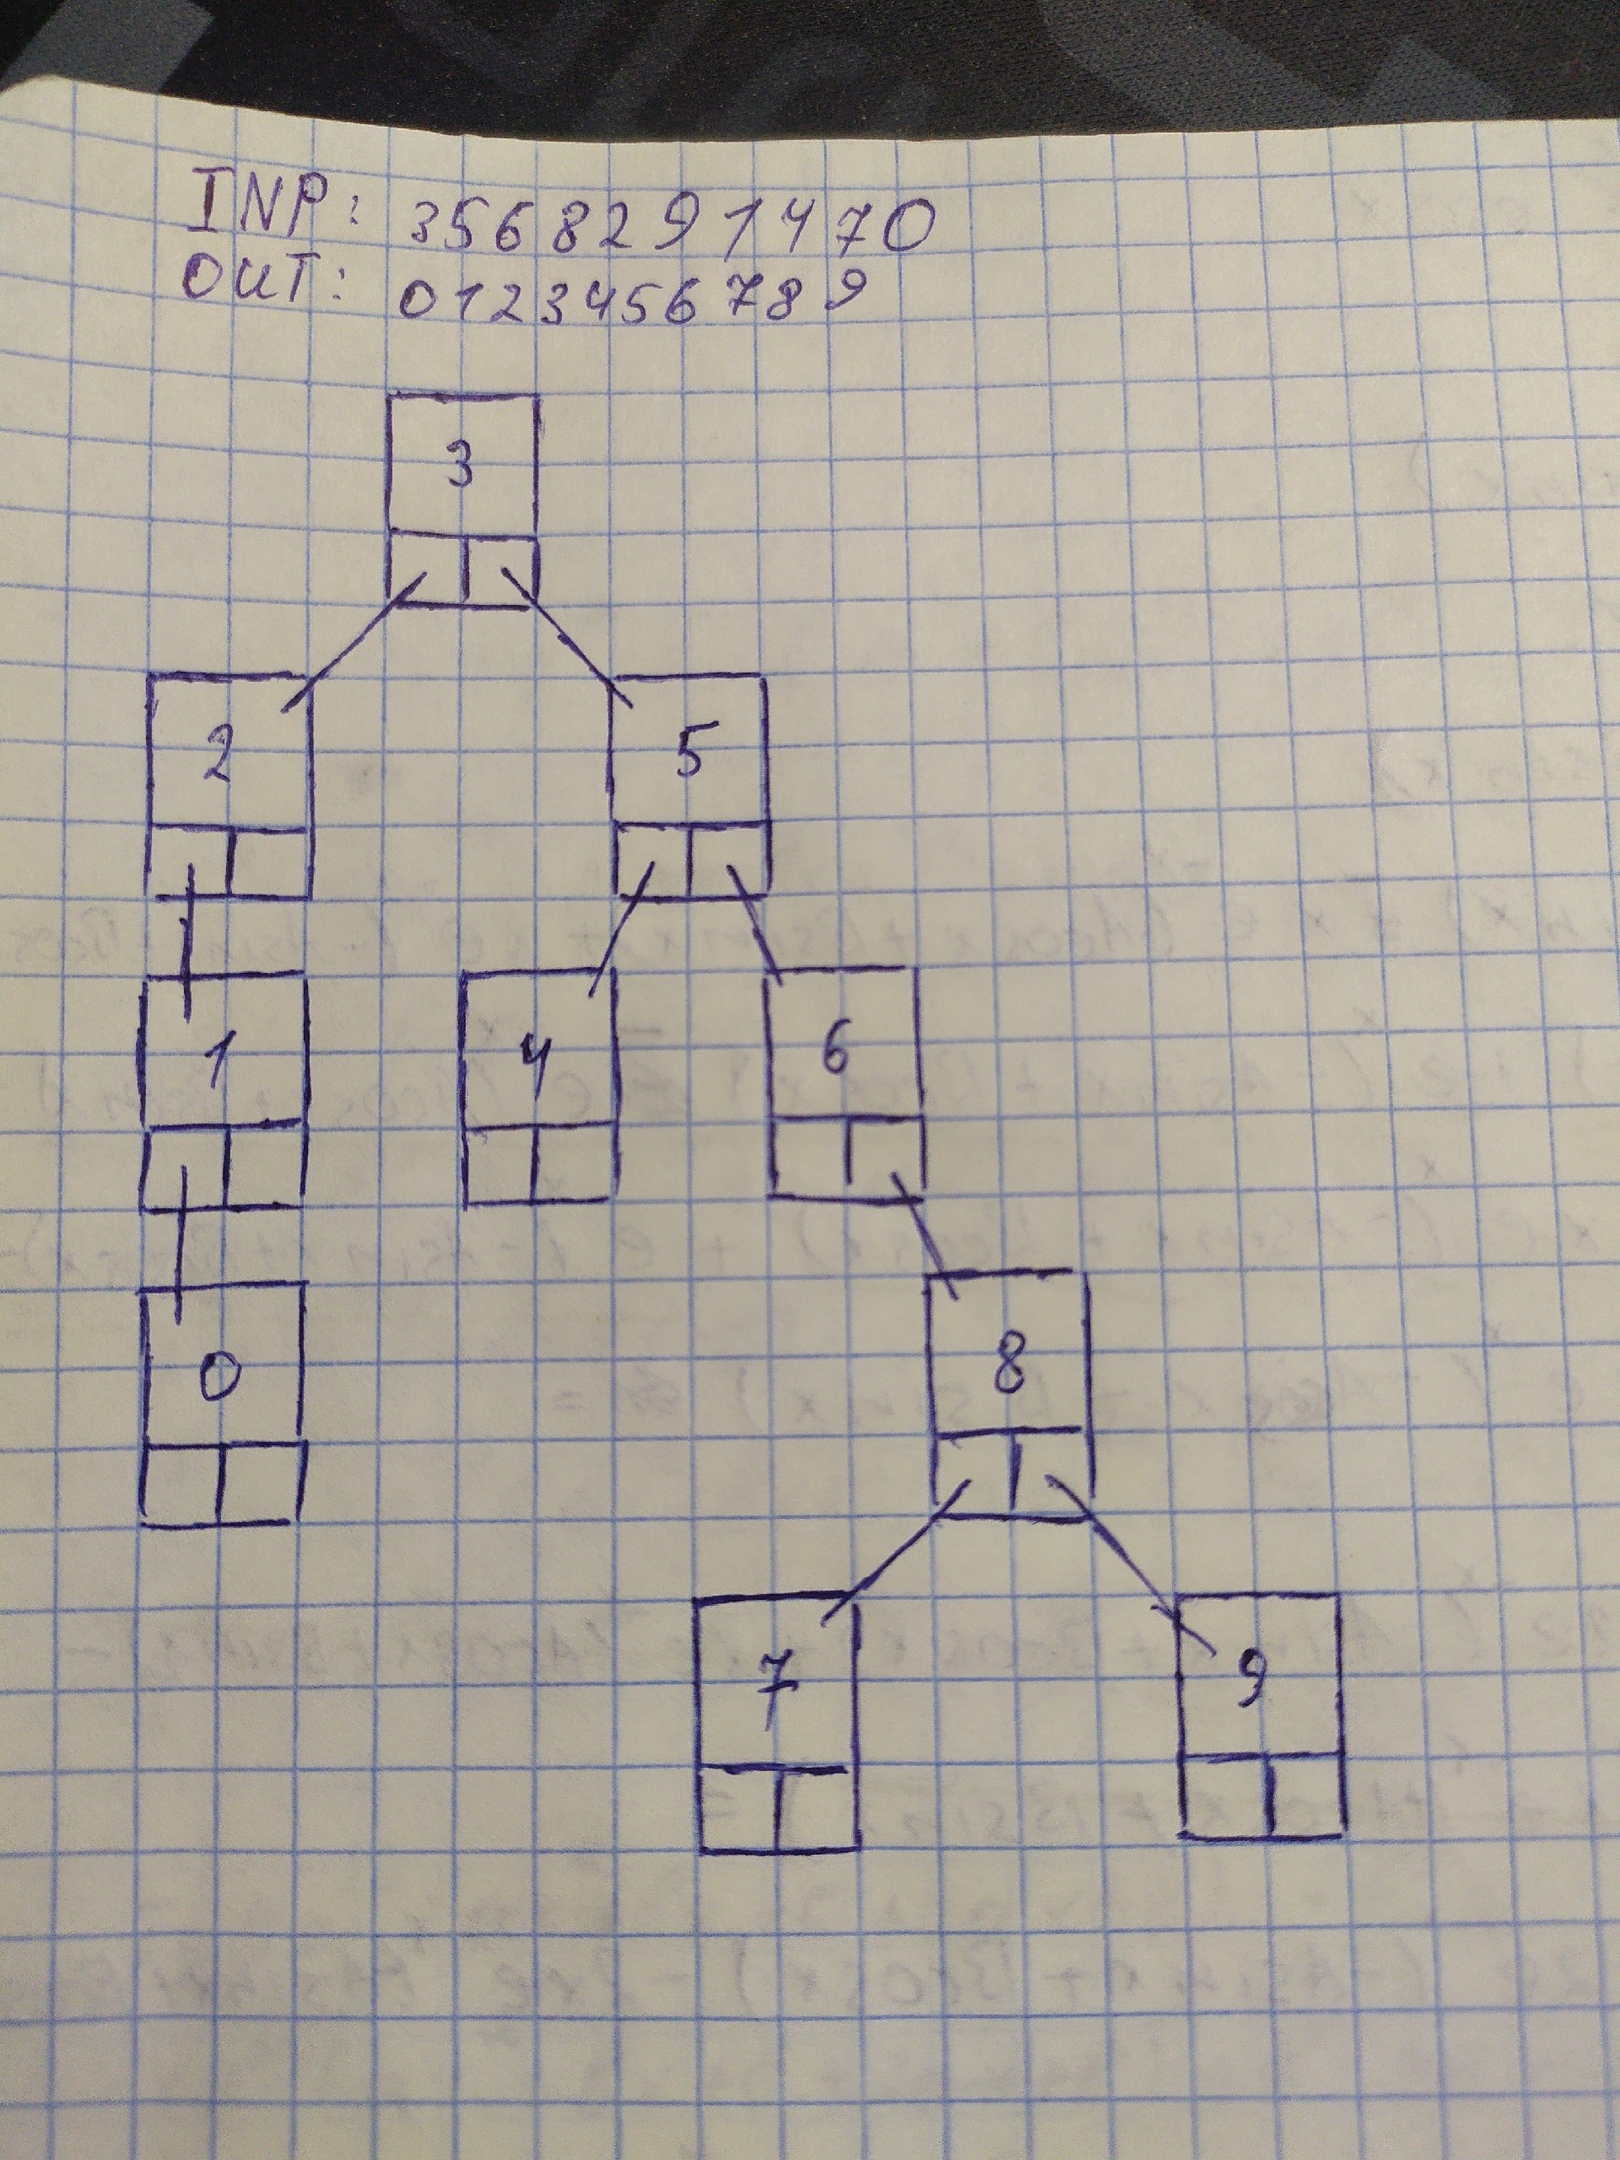 INP: 3568291470
OUT: 0123456789
3
2 5
1 4 6
0 8
7 9